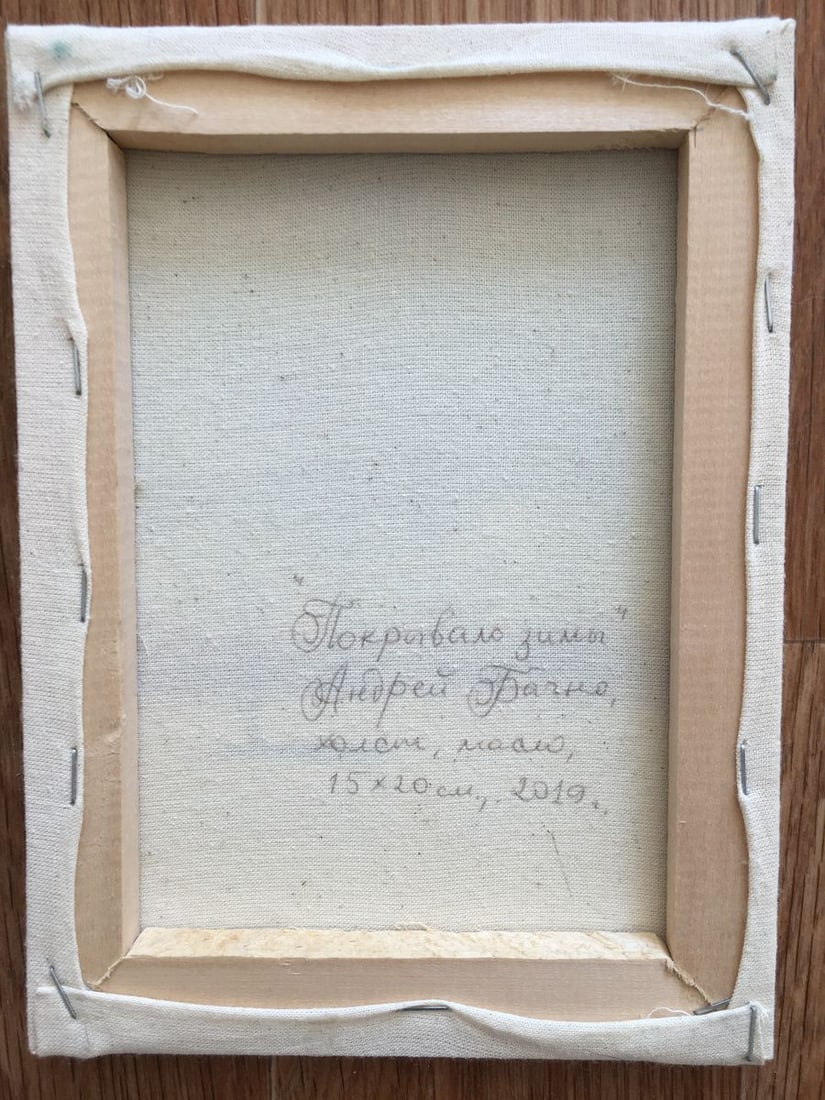 "Покрывало зимы"
Андрей Бачно,
холст, масло,
15×20 см., 2019г.,